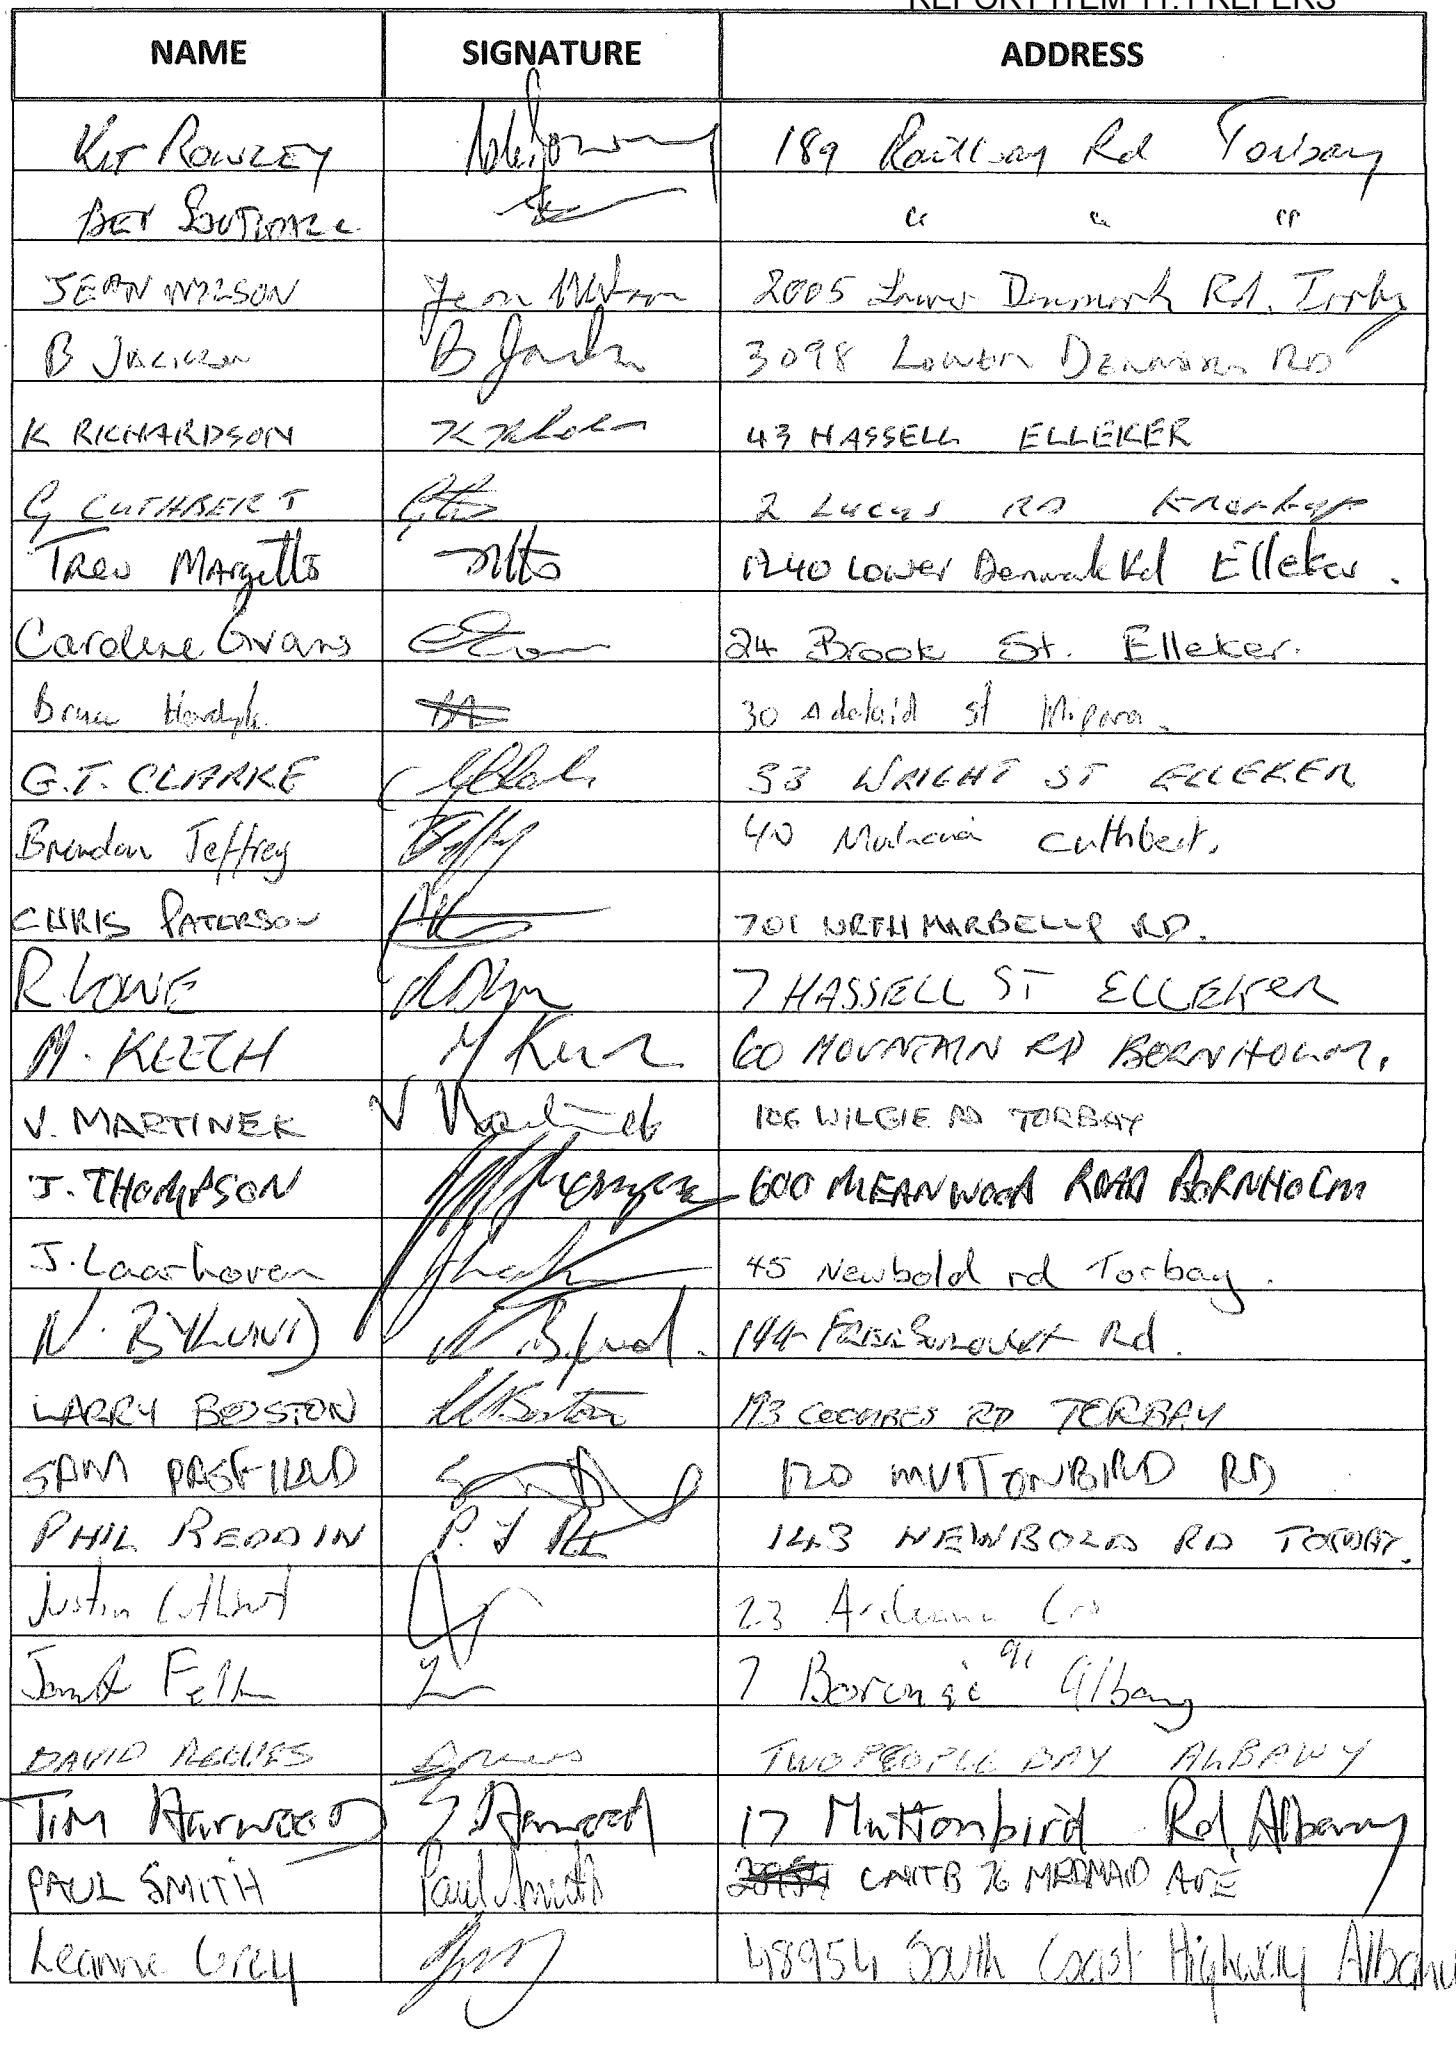 REPORT ITEM 11.1 REFERS
NAME SIGNATURE ADDRESS
KIT ROWLEY 189 Railway Rd Torbay
BEV SOUTHALL " " "
JEAN WILSON Jean Wilson 2005 Lower Denmark Rd.
B JACKSON B Jack 3098 LOWER DENMARK RD
K RICHARDSON 43 HASSELL ELLEKER
G CUTHBERT 2 LUCAS RD
Trev Margetts 1240 Lower Denmark Rd Elleker.
Caroline Evans 24 Brook St. Elleker.
Bruce 30 Adelaid st
G.T. CLARKE 53 WRIGHT ST ELLEKER
Brendan Jeffrey 40 Cuthbert.
CHRIS PATERSON 701 MARBELUP RD.
R. LOWE 7 HASSELL ST ELLEKER
M. KEECH 60 MOUNTAIN RD BORNHOLM.
V. MARTINEK V Martinek 106 WILGIE RD TORBAY
J. THOMPSON 600 MEANWOOD ROAD BORNHOLM
J. Laarhoven 45 Newbold rd Torbay.
N. BYLUND N Bylund. 144 Rd.
LARRY BOSTON 193 COOMBES RD TORBAY
SAM PASFIELD 120 MUTTONBIRD RD
PHIL REDDIN 143 NEWBOLD RD TORBAY.
Justin Cuthbert 23
7 Albany
DAVID REEVES TWO PEOPLE BAY ALBANY
TIM Harwood T Harwood 17 Muttonbird Rd, Albany
PAUL SMITH Paul Smith UNIT B 76 MERMAID AVE
Leanne Grey 48954 South Coast Highway Albany